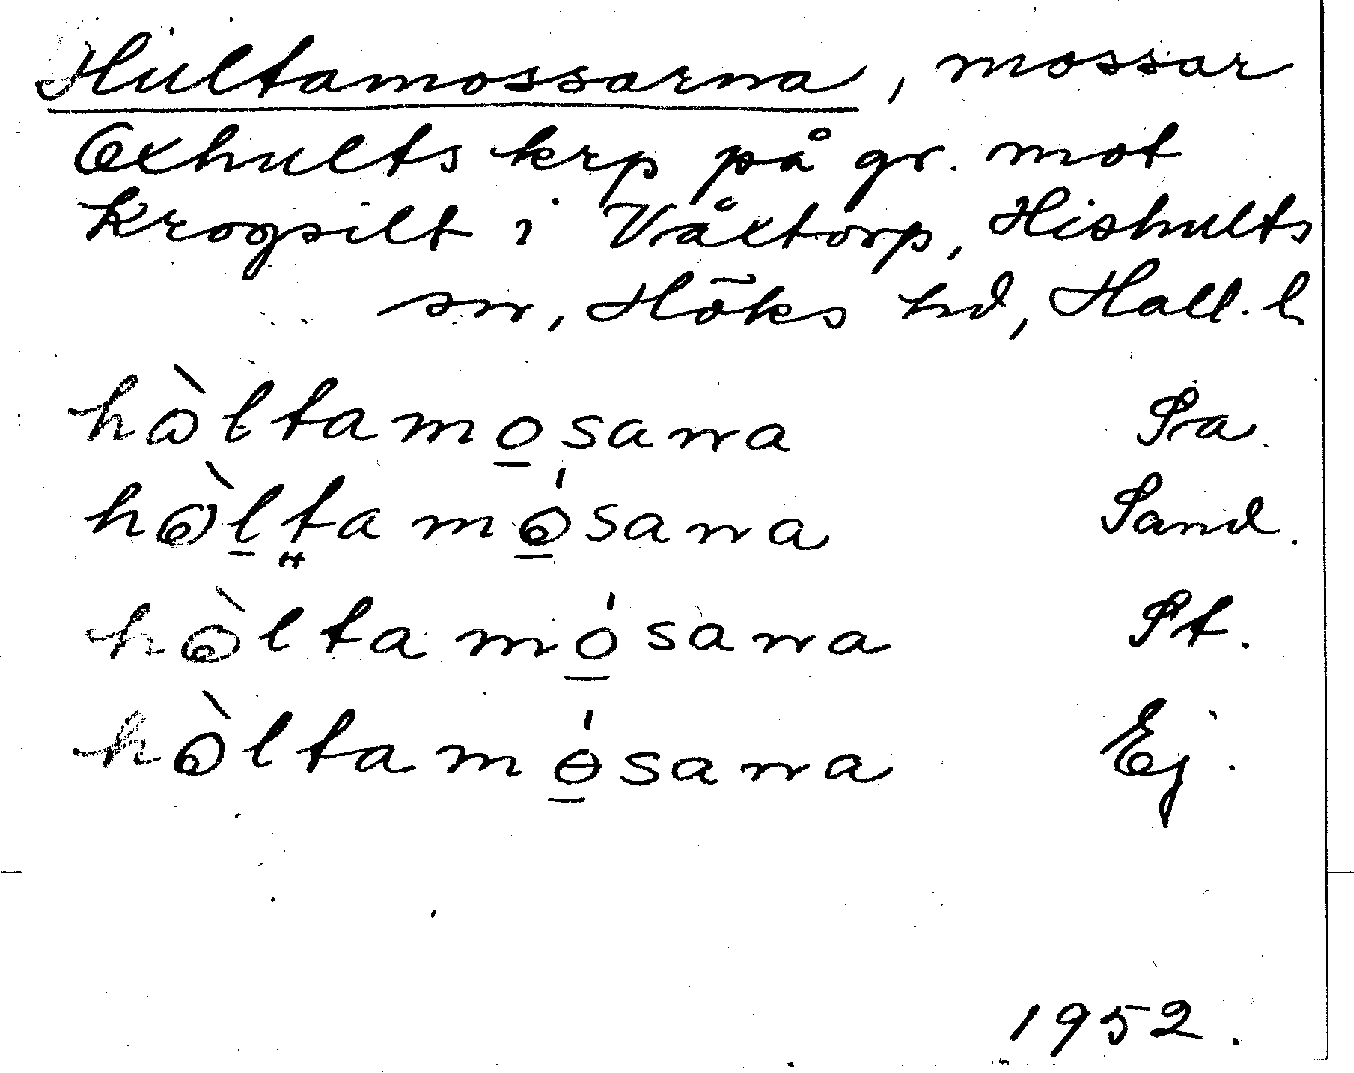 Hultamossarna, mossar
Oxhults krp på gr. mot
Krogsilt i Våxtorp, Hishults
sn, Höks hd, Hall. l.
hòltamo̲sana Pa.
hòl̲tamó̲sana Sand.
hòltamó̲sana Pt.
hòltamó̲sana Ej.
1952.